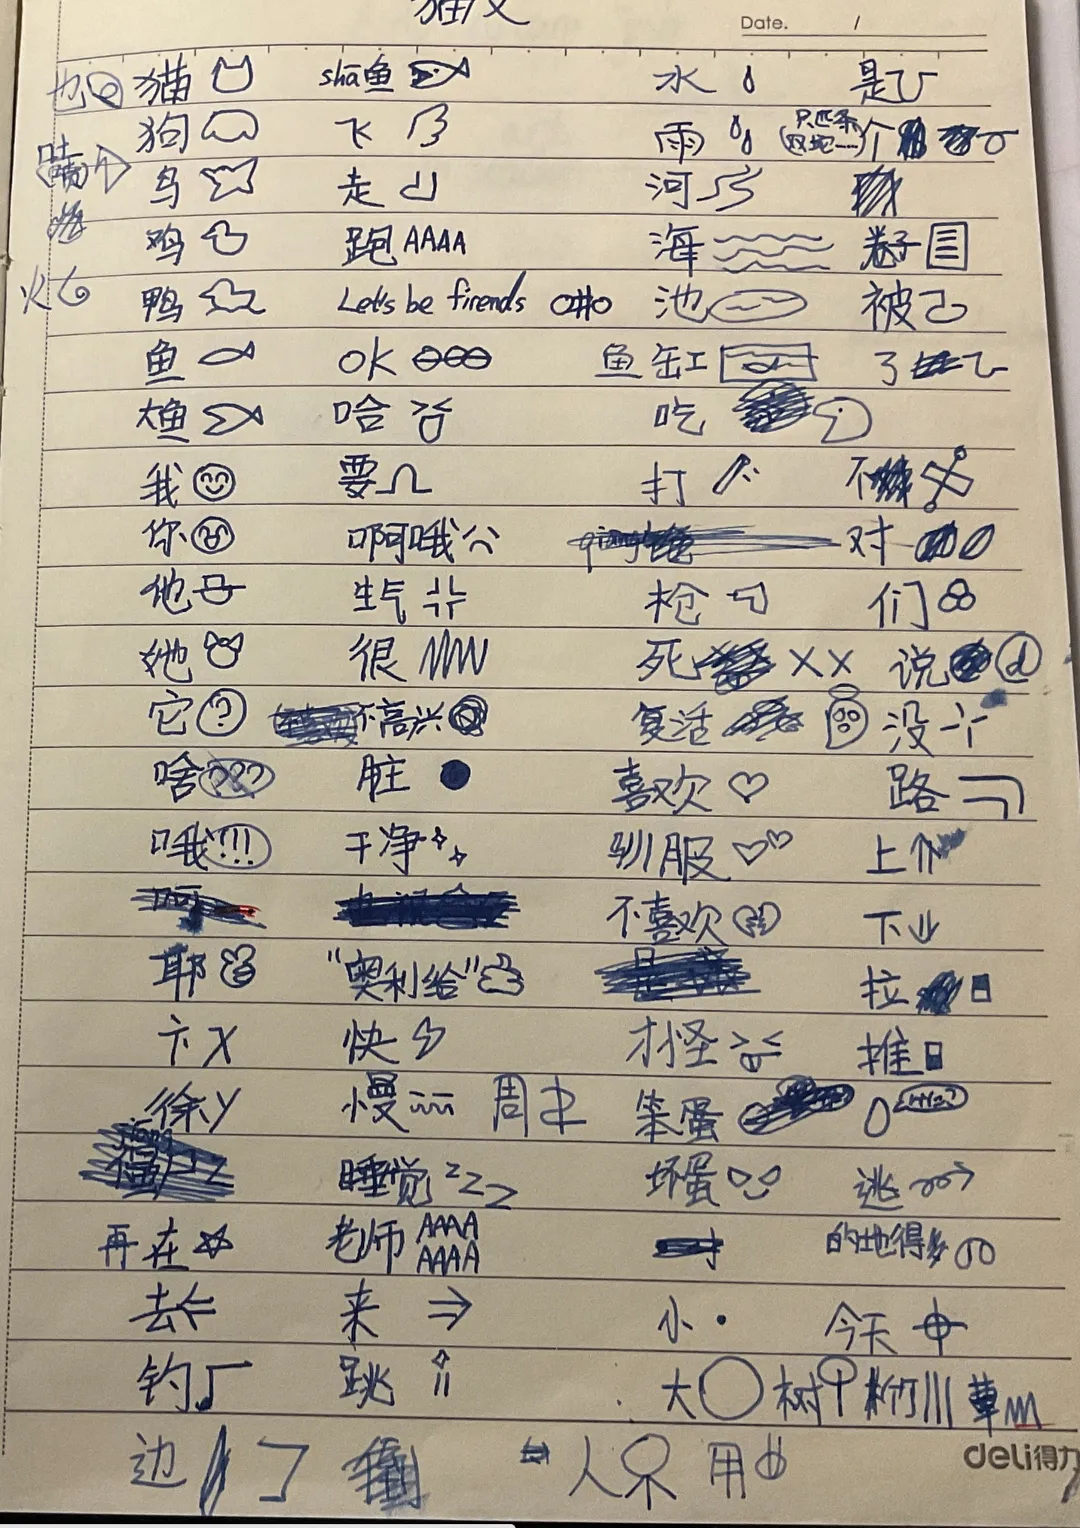 猫文
Date. /
也 猫 shā鱼 水 是
狗 飞 雨 (只匹条双坨……)个
哇 鸟 走 河
鸡 跑 AAAA 海 卷子
火 鸭 Let's be firends O#O 池 被
鱼 OK 鱼缸 了
大鱼 哈 吃
我 要 打 不
你 啊哦 对
他 生气 枪 们
她 很 死 XX 说
它 ? 不高兴 复活 没
啥 ??? 脏 喜欢 路
哦 !!! 干净 驯服 上
不喜欢 下
耶 "奥利给" 拉
卞 X 快 才怪 推
徐 y 慢 周 笨蛋
睡觉 zzz 坏蛋 逃
再在 老师 AAAA AAAA 的地得
去 来 小 今天
钓 跳 大 树 竹 草
边 人 用
deli得力